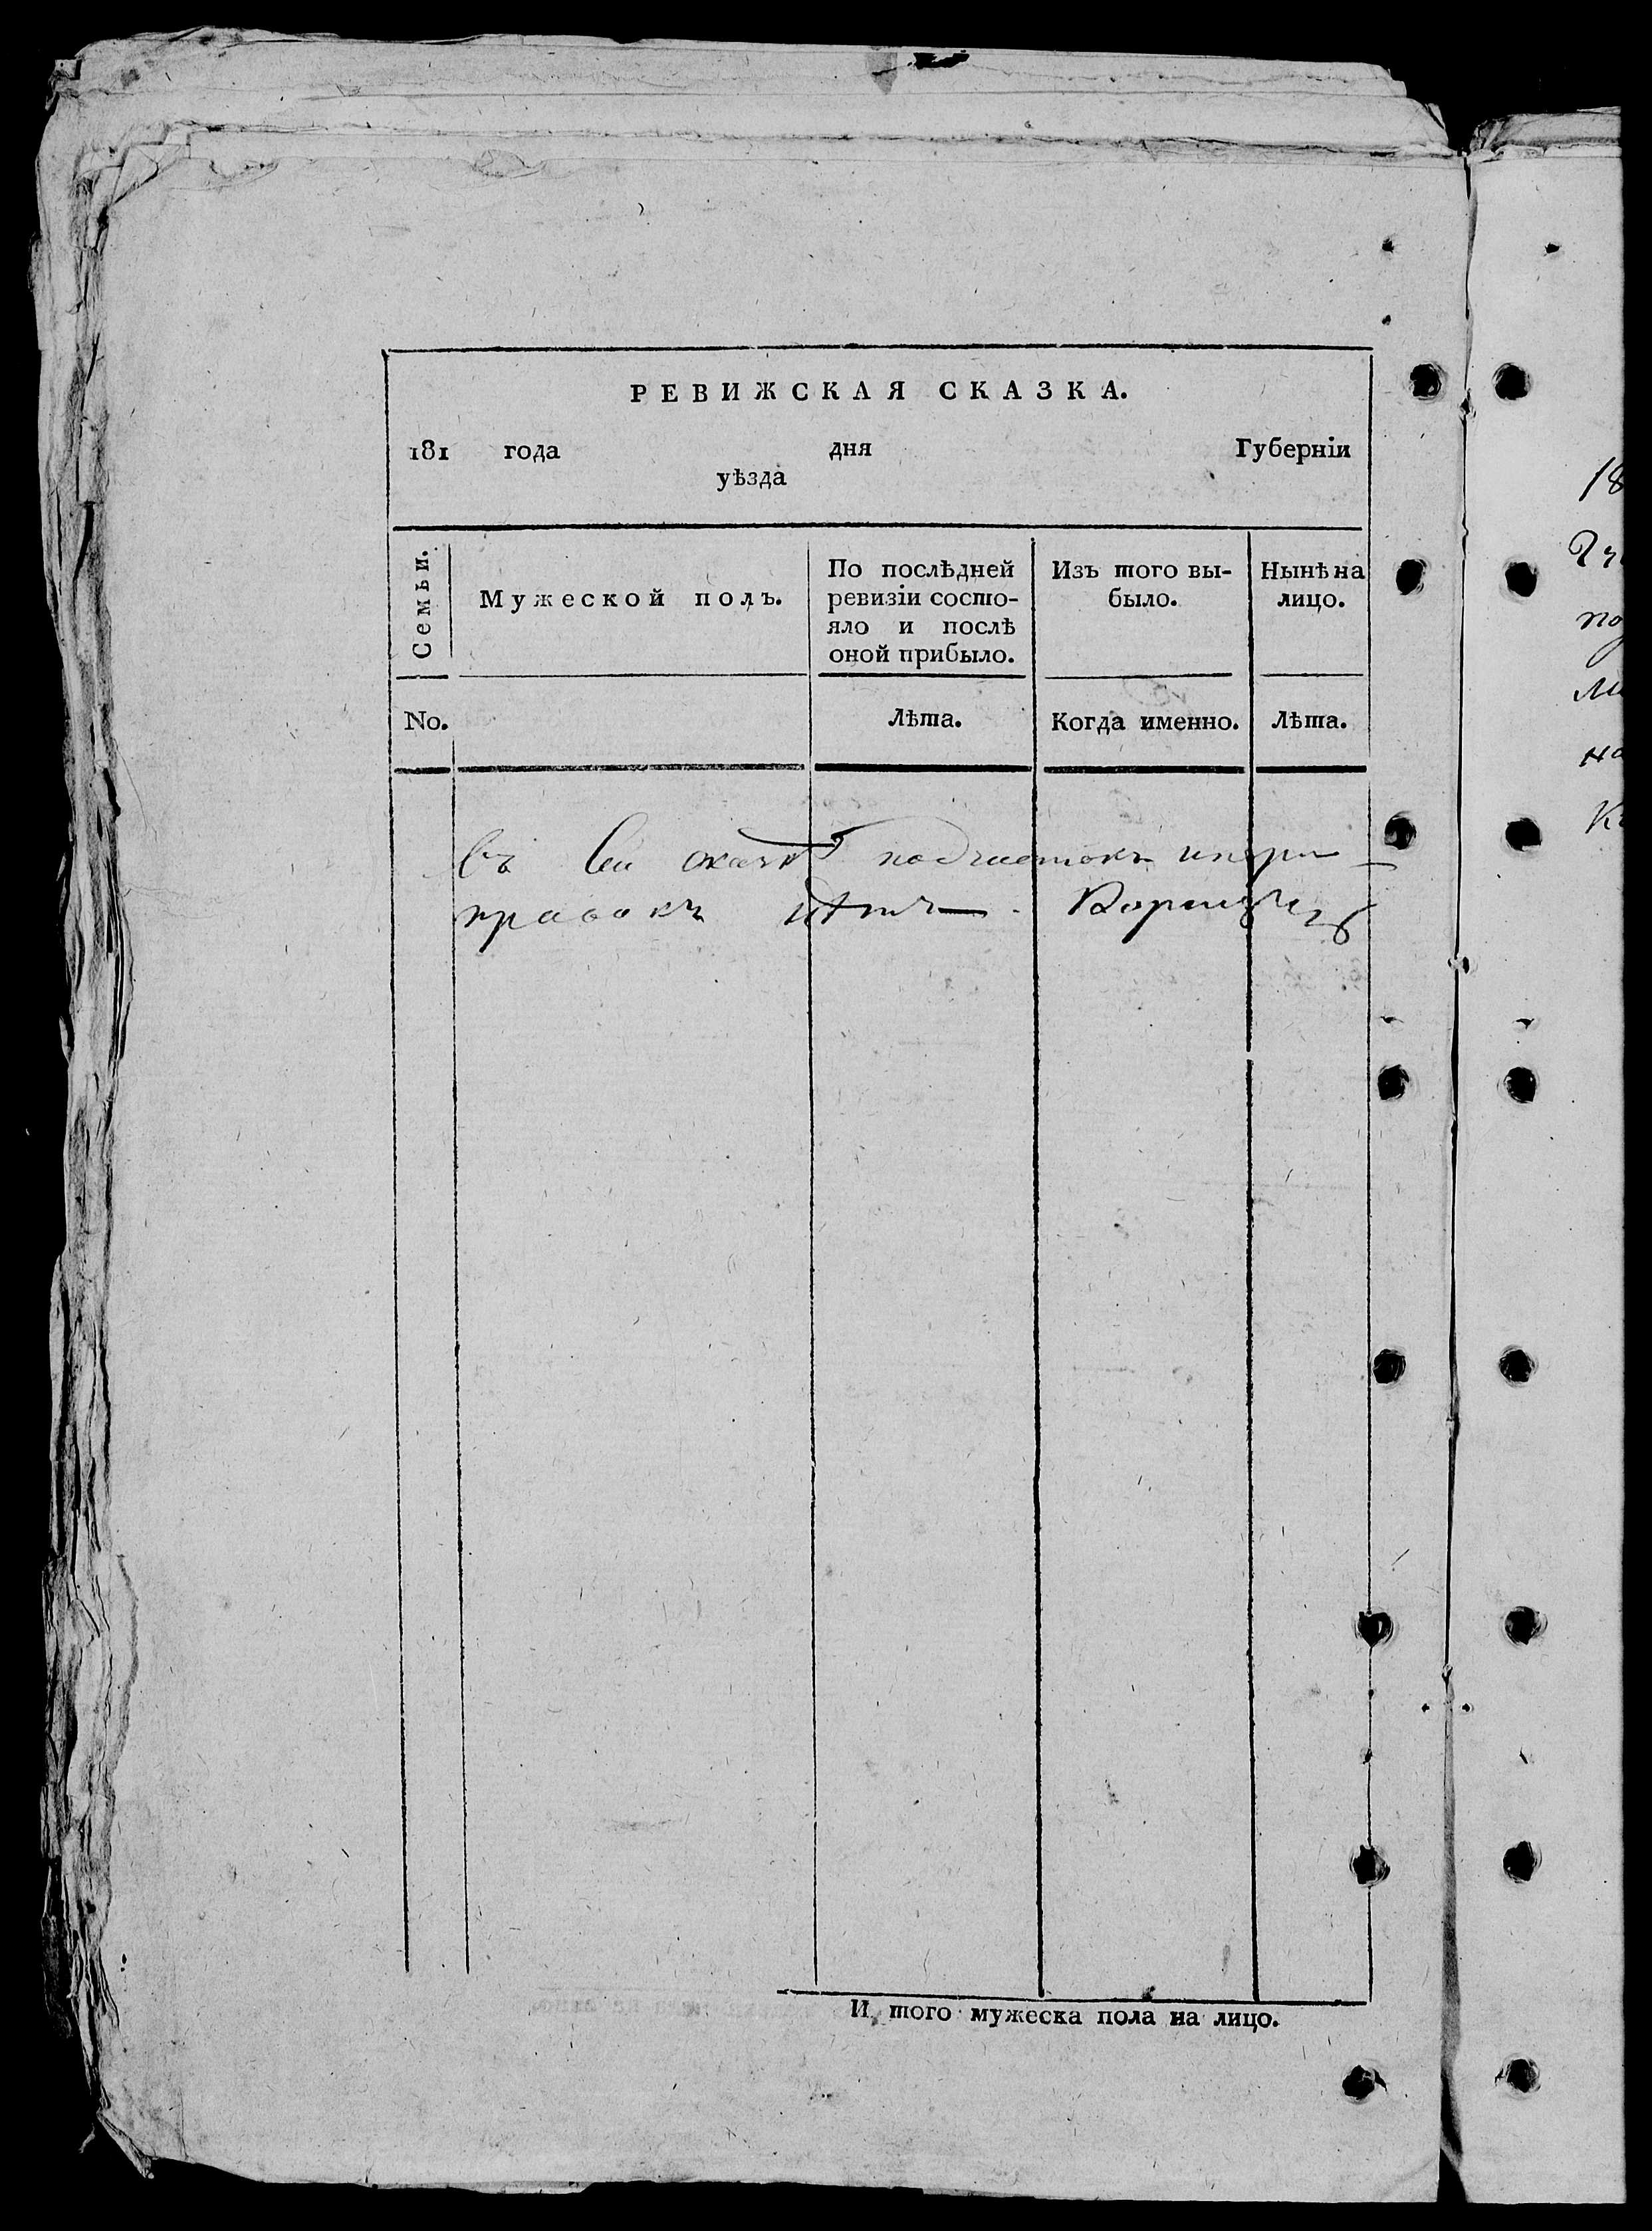 РЕВИЖСКАЯ СКАЗКА.
181 года дня Губерніи
уѣзда
Семьи.
Мужеской полъ.
По послѣдней
ревизіи состо-
яло и послѣ
оной прибыло.
Изъ того вы-
было.
Нынѣ на
лицо.
No.
Лѣта.
Когда именно.
Лѣта.
Въ сей сказкѣ подчистокъ и при
правокъ нѣтъ
И того мужеска пола на лицо.
18
по
на